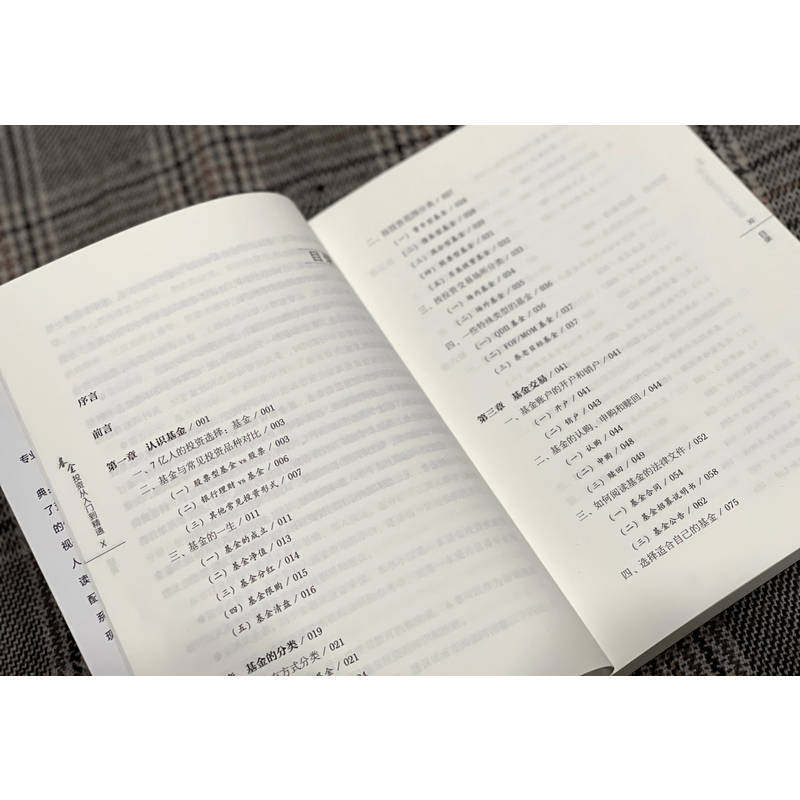 目
序言
前言
第一章 认识基金 / 001
一、7 亿人的投资选择：基金 / 001
二、基金与常见投资品种对比 / 003
（一）股票型基金 vs 股票 / 003
（二）银行理财 vs 基金 / 006
（三）其他常见投资形式 / 007
三、基金的一生 / 011
（一）基金的成立 / 011
（二）基金净值 / 013
（三）基金分红 / 014
（四）基金限购 / 015
（五）基金清盘 / 016
基金的分类 / 019
方式分类 / 021
基金 / 021
基金 / 024
基金
投资从入门到精通
X
专业
典
了
的
视
人
读
配
现
三、按投资交易场所分类 / 033
（一）场内基金 / 034
（二）场外基金 / 035
四、一些特殊类型的基金 / 036
（一）QDII 基金 / 036
（二）FOF/MOM 基金 / 037
（三）养老目标基金 / 037
第三章 基金交易 / 041
一、基金账户的开户和销户 / 041
（一）开户 / 041
（二）销户 / 043
二、基金的认购、申购和赎回 / 044
（一）认购 / 044
（二）申购 / 048
（三）赎回 / 049
三、如何阅读基金的法律文件 / 052
（一）基金合同 / 054
（二）基金招募说明书 / 058
（三）基金公告 / 062
四、选择适合自己的基金 / 075
XI
目录